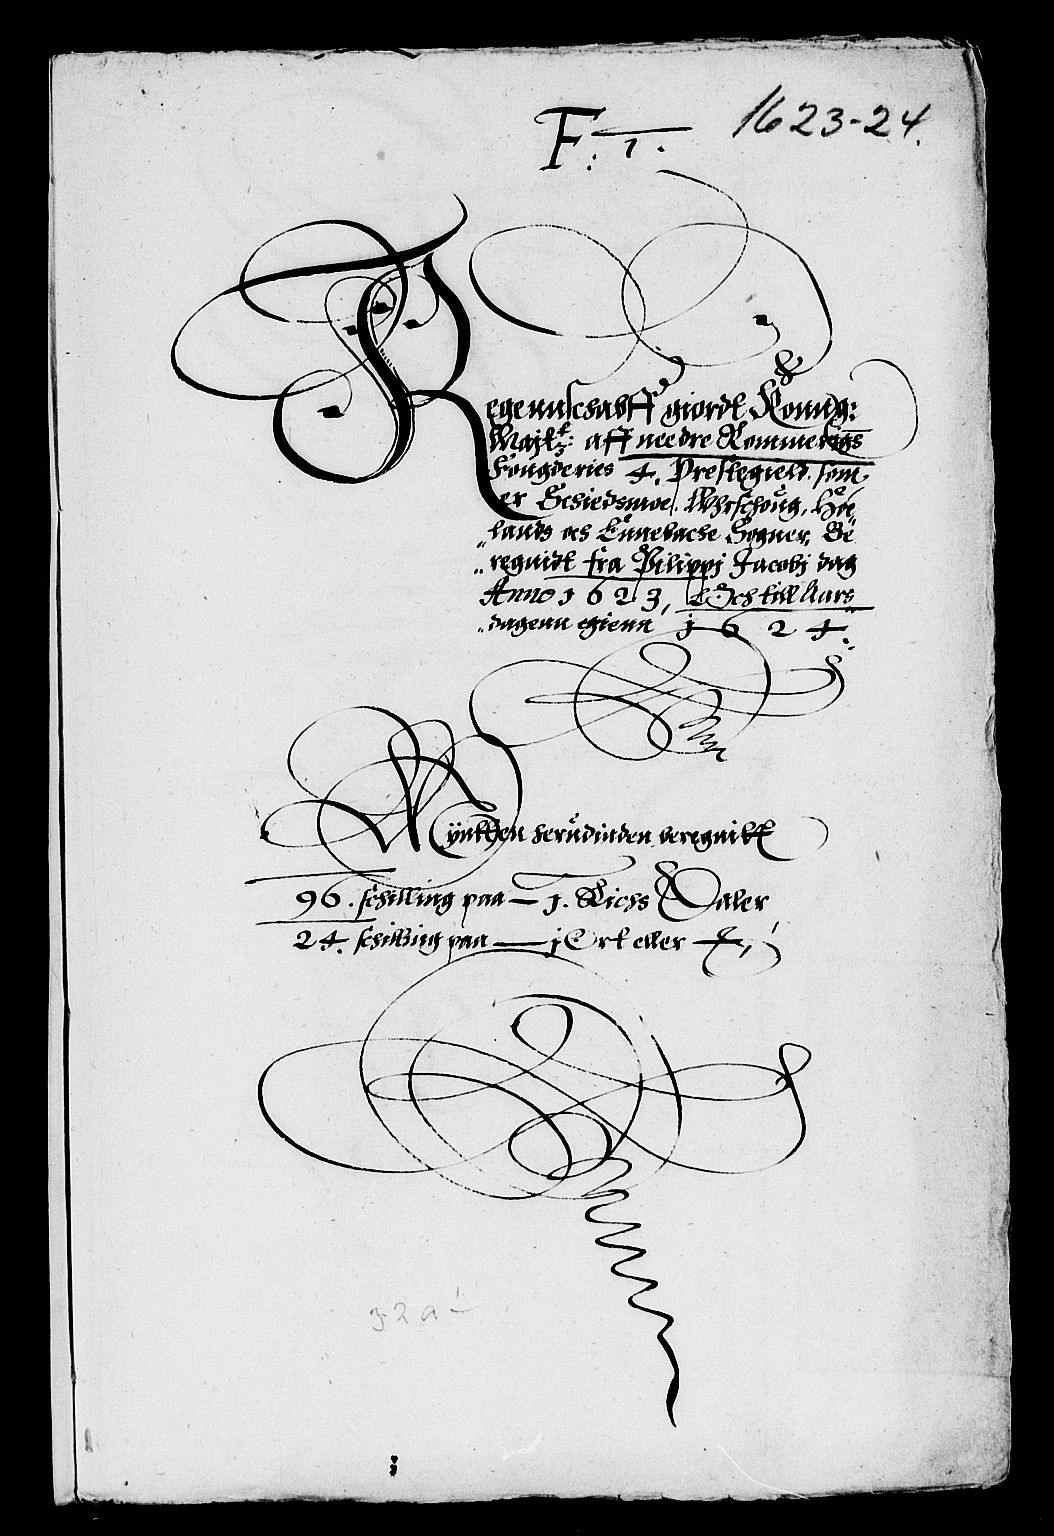 F: 1.
1623-24.
Regennschabff giordt Konng:
Maytz: aff needre Rommerigs
Fougderies 4. Prestegield. som
er Schiedsmoe, Whrschoug, Höe
„lands och Ennebache Sogner, Be
„regnidt fra Philippj Jacobj dag
Anno 1623, Och till Aars
„dagenn igienn 1624.
Myntten herudinden beregnitt
96. schilling paa — 1. Richs Daler
24. schilling paa — j Ort eller 4,
32a